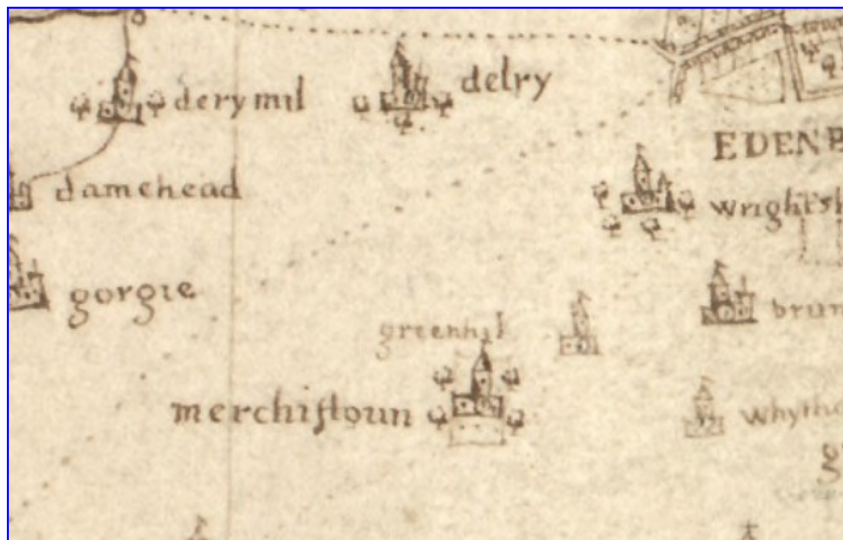 delry
derymil
EDENB
damehead
wrightsh
gorgie
brun
greenhil
merchiſtoun
whytho